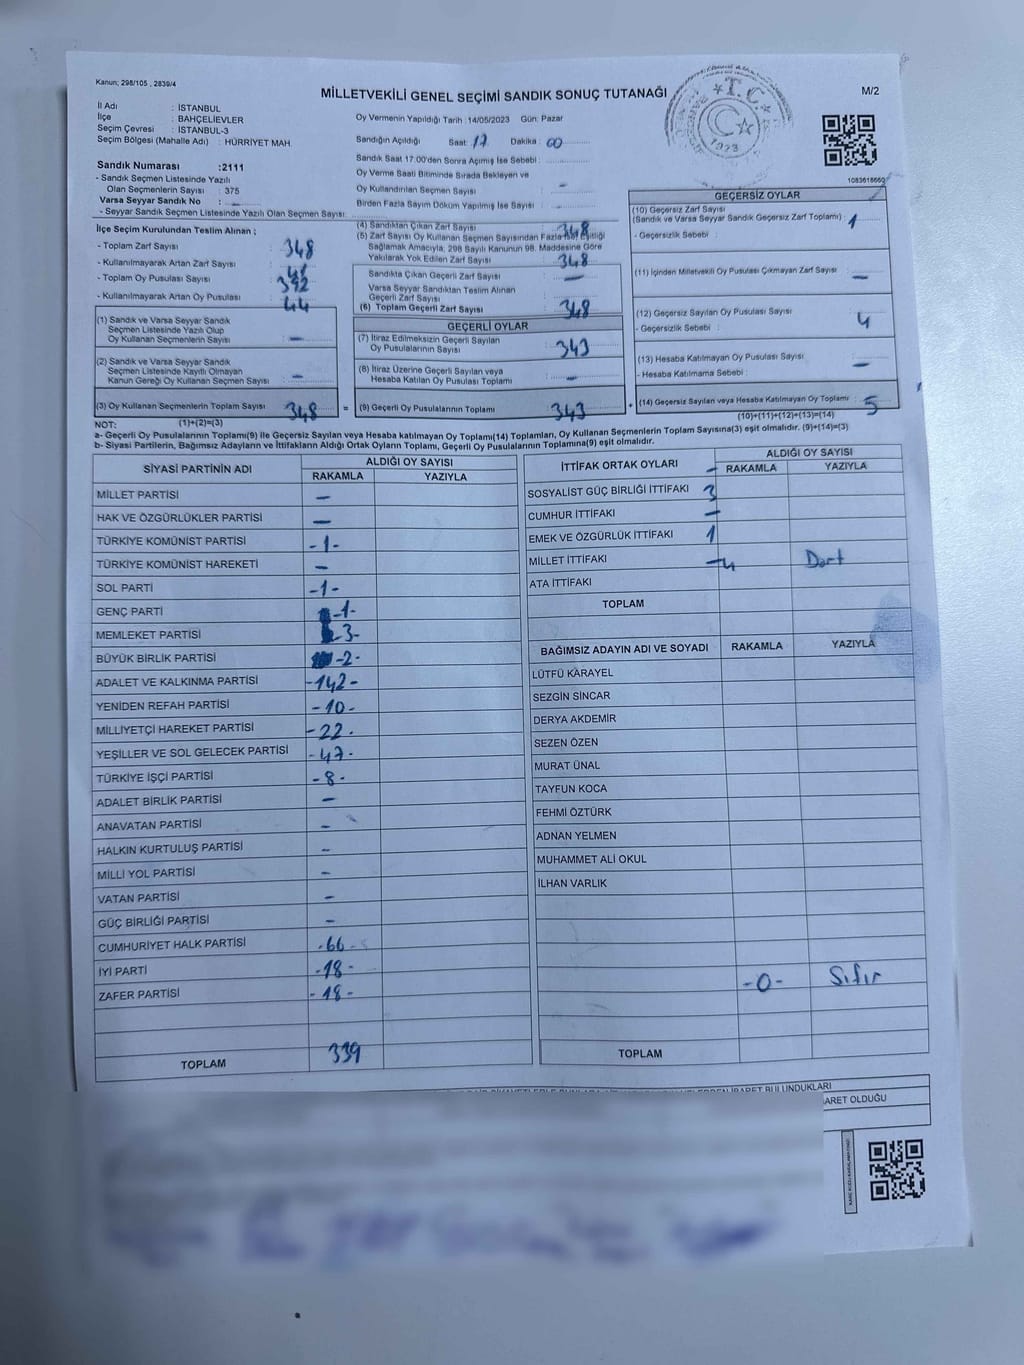 Kanun; 298/105 , 2839/4
MİLLETVEKİLİ GENEL SEÇİMİ SANDIK SONUÇ TUTANAĞI
M/2
T.C.
1923
İl Adı : İSTANBUL
İlçe : BAHÇELİEVLER
Seçim Çevresi : İSTANBUL-3
Seçim Bölgesi (Mahalle Adı) : HÜRRİYET MAH.
Sandık Numarası :2111
- Sandık Seçmen Listesinde Yazılı
Olan Seçmenlerin Sayısı : 375
Varsa Seyyar Sandık No :
- Seyyar Sandık Seçmen Listesinde Yazılı Olan Seçmen Sayısı:
Oy Vermenin Yapıldığı Tarih : 14/05/2023 Gün: Pazar
Sandığın Açıldığı Saat: 17 Dakika: 00
Sandık Saat 17:00'den Sonra Açımış İse Sebebi :
Oy Verme Saati Bitiminde Sırada Bekleyen ve
Oy Kullandırılan Seçmen Sayısı : -
Birden Fazla Sayım Döküm Yapılmış İse Sayısı : -
1083618660
İlçe Seçim Kurulundan Teslim Alınan ;
- Toplam Zarf Sayısı : 348
- Kullanılmayarak Artan Zarf Sayısı :
- Toplam Oy Pusulası Sayısı : 392
- Kullanılmayarak Artan Oy Pusulası : 44
(1) Sandık ve Varsa Seyyar Sandık
Seçmen Listesinde Yazılı Olup
Oy Kullanan Seçmenlerin Sayısı : -
(2) Sandık ve Varsa Seyyar Sandık
Seçmen Listesinde Kayıtlı Olmayan
Kanun Gereği Oy Kullanan Seçmen Sayısı : -
(3) Oy Kullanan Seçmenlerin Toplam Sayısı : 348
(1)+(2)=(3)
(4) Sandıktan Çıkan Zarf Sayısı : 348
(5) Zarf Sayısı Oy Kullanan Seçmen Sayısından Fazla İse, Eşitliği
Sağlamak Amacıyla, 298 Sayılı Kanunun 98. Maddesine Göre
Yakılarak Yok Edilen Zarf Sayısı : 348
Sandıkta Çıkan Geçerli Zarf Sayısı : -
Varsa Seyyar Sandıktan Teslim Alınan
Geçerli Zarf Sayısı :
(6) Toplam Geçerli Zarf Sayısı : 348
GEÇERLİ OYLAR
(7) İtiraz Edilmeksizin Geçerli Sayılan
Oy Pusulalarının Sayısı : 343
(8) İtiraz Üzerine Geçerli Sayılan veya
Hesaba Katılan Oy Pusulası Toplamı : -
= (9) Geçerli Oy Pusulalarının Toplamı : 343
GEÇERSİZ OYLAR
(10) Geçersiz Zarf Sayısı
(Sandık ve Varsa Seyyar Sandık Geçersiz Zarf Toplamı) : 1
- Geçersizlik Sebebi :
(11) İçinden Milletvekili Oy Pusulası Çıkmayan Zarf Sayısı : -
(12) Geçersiz Sayılan Oy Pusulası Sayısı : 4
- Geçersizlik Sebebi :
(13) Hesaba Katılmayan Oy Pusulası Sayısı : -
- Hesaba Katılmama Sebebi :
+ (14) Geçersiz Sayılan veya Hesaba Katılmayan Oy Toplamı : 5
(10)+(11)+(12)+(13)=(14)
NOT:
a- Geçerli Oy Pusulalarının Toplamı(9) ile Geçersiz Sayılan veya Hesaba katılmayan Oy Toplamı(14) Toplamları, Oy Kullanan Seçmenlerin Toplam Sayısına(3) eşit olmalıdır. (9)+(14)=(3)
b- Siyasi Partilerin, Bağımsız Adayların ve İttifakların Aldığı Oyların Toplamı, Geçerli Oy Pusulalarının Toplamına(9) eşit olmalıdır.
SİYASİ PARTİNİN ADI ALDIĞI OY SAYISI
RAKAMLA YAZIYLA
MİLLET PARTİSİ -
HAK VE ÖZGÜRLÜKLER PARTİSİ -
TÜRKİYE KOMÜNİST PARTİSİ -1-
TÜRKİYE KOMÜNİST HAREKETİ -
SOL PARTİ -1-
GENÇ PARTİ -1-
MEMLEKET PARTİSİ -3-
BÜYÜK BİRLİK PARTİSİ -2-
ADALET VE KALKINMA PARTİSİ -142-
YENİDEN REFAH PARTİSİ -10-
MİLLİYETÇİ HAREKET PARTİSİ -22-
YEŞİLLER VE SOL GELECEK PARTİSİ -47-
TÜRKİYE İŞÇİ PARTİSİ -8-
ADALET BİRLİK PARTİSİ -
ANAVATAN PARTİSİ -
HALKIN KURTULUŞ PARTİSİ -
MİLLİ YOL PARTİSİ -
VATAN PARTİSİ -
GÜÇ BİRLİĞİ PARTİSİ -
CUMHURİYET HALK PARTİSİ -66-
İYİ PARTİ -18-
ZAFER PARTİSİ -18-
TOPLAM 339
İTTİFAK ORTAK OYLARI ALDIĞI OY SAYISI
RAKAMLA YAZIYLA
SOSYALİST GÜÇ BİRLİĞİ İTTİFAKI -
CUMHUR İTTİFAKI 3
EMEK VE ÖZGÜRLÜK İTTİFAKI -
MİLLET İTTİFAKI 1
ATA İTTİFAKI -
TOPLAM 4 Dört
BAĞIMSIZ ADAYIN ADI VE SOYADI RAKAMLA YAZIYLA
LÜTFÜ KARAYEL
SEZGİN SİNCAR
DERYA AKDEMİR
SEZEN ÖZEN
MURAT ÜNAL
TAYFUN KOCA
FEHMİ ÖZTÜRK
ADNAN YELMEN
MUHAMMET ALİ OKUL
İLHAN VARLIK
TOPLAM -0- Sıfır
BULUNDUKLARI
OLDUĞU